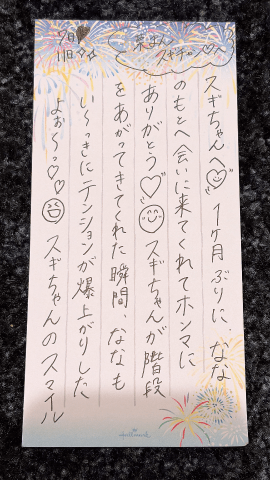 7日
11日
葉月
スギちゃんへ
スギちゃんへ 1ヶ月ぶりに、なな
のもとへ会いに来てくれてホンマに
ありがとう スギちゃんが階段
をあがってきてくれた瞬間、ななも
い〜っきにテンションが爆上がりした
よぉ〜っ スギちゃんのスマイル
Hallmark